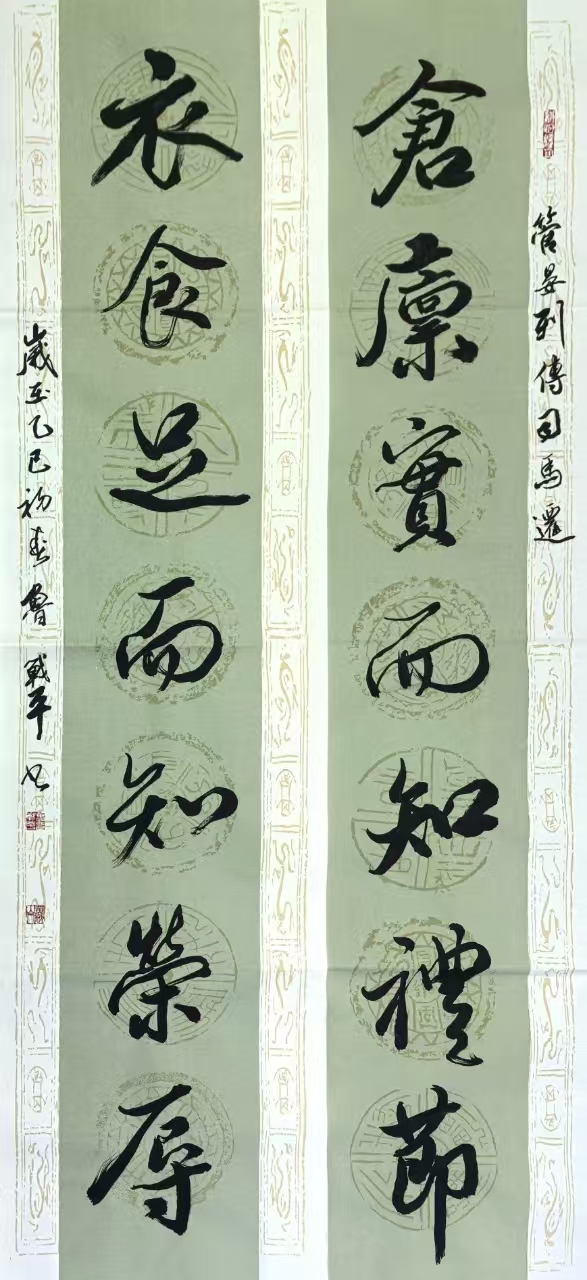 管晏列傳司馬遷
倉廩實而知禮節
衣食足而知榮辱
歲在乙巳初春魯戰平書